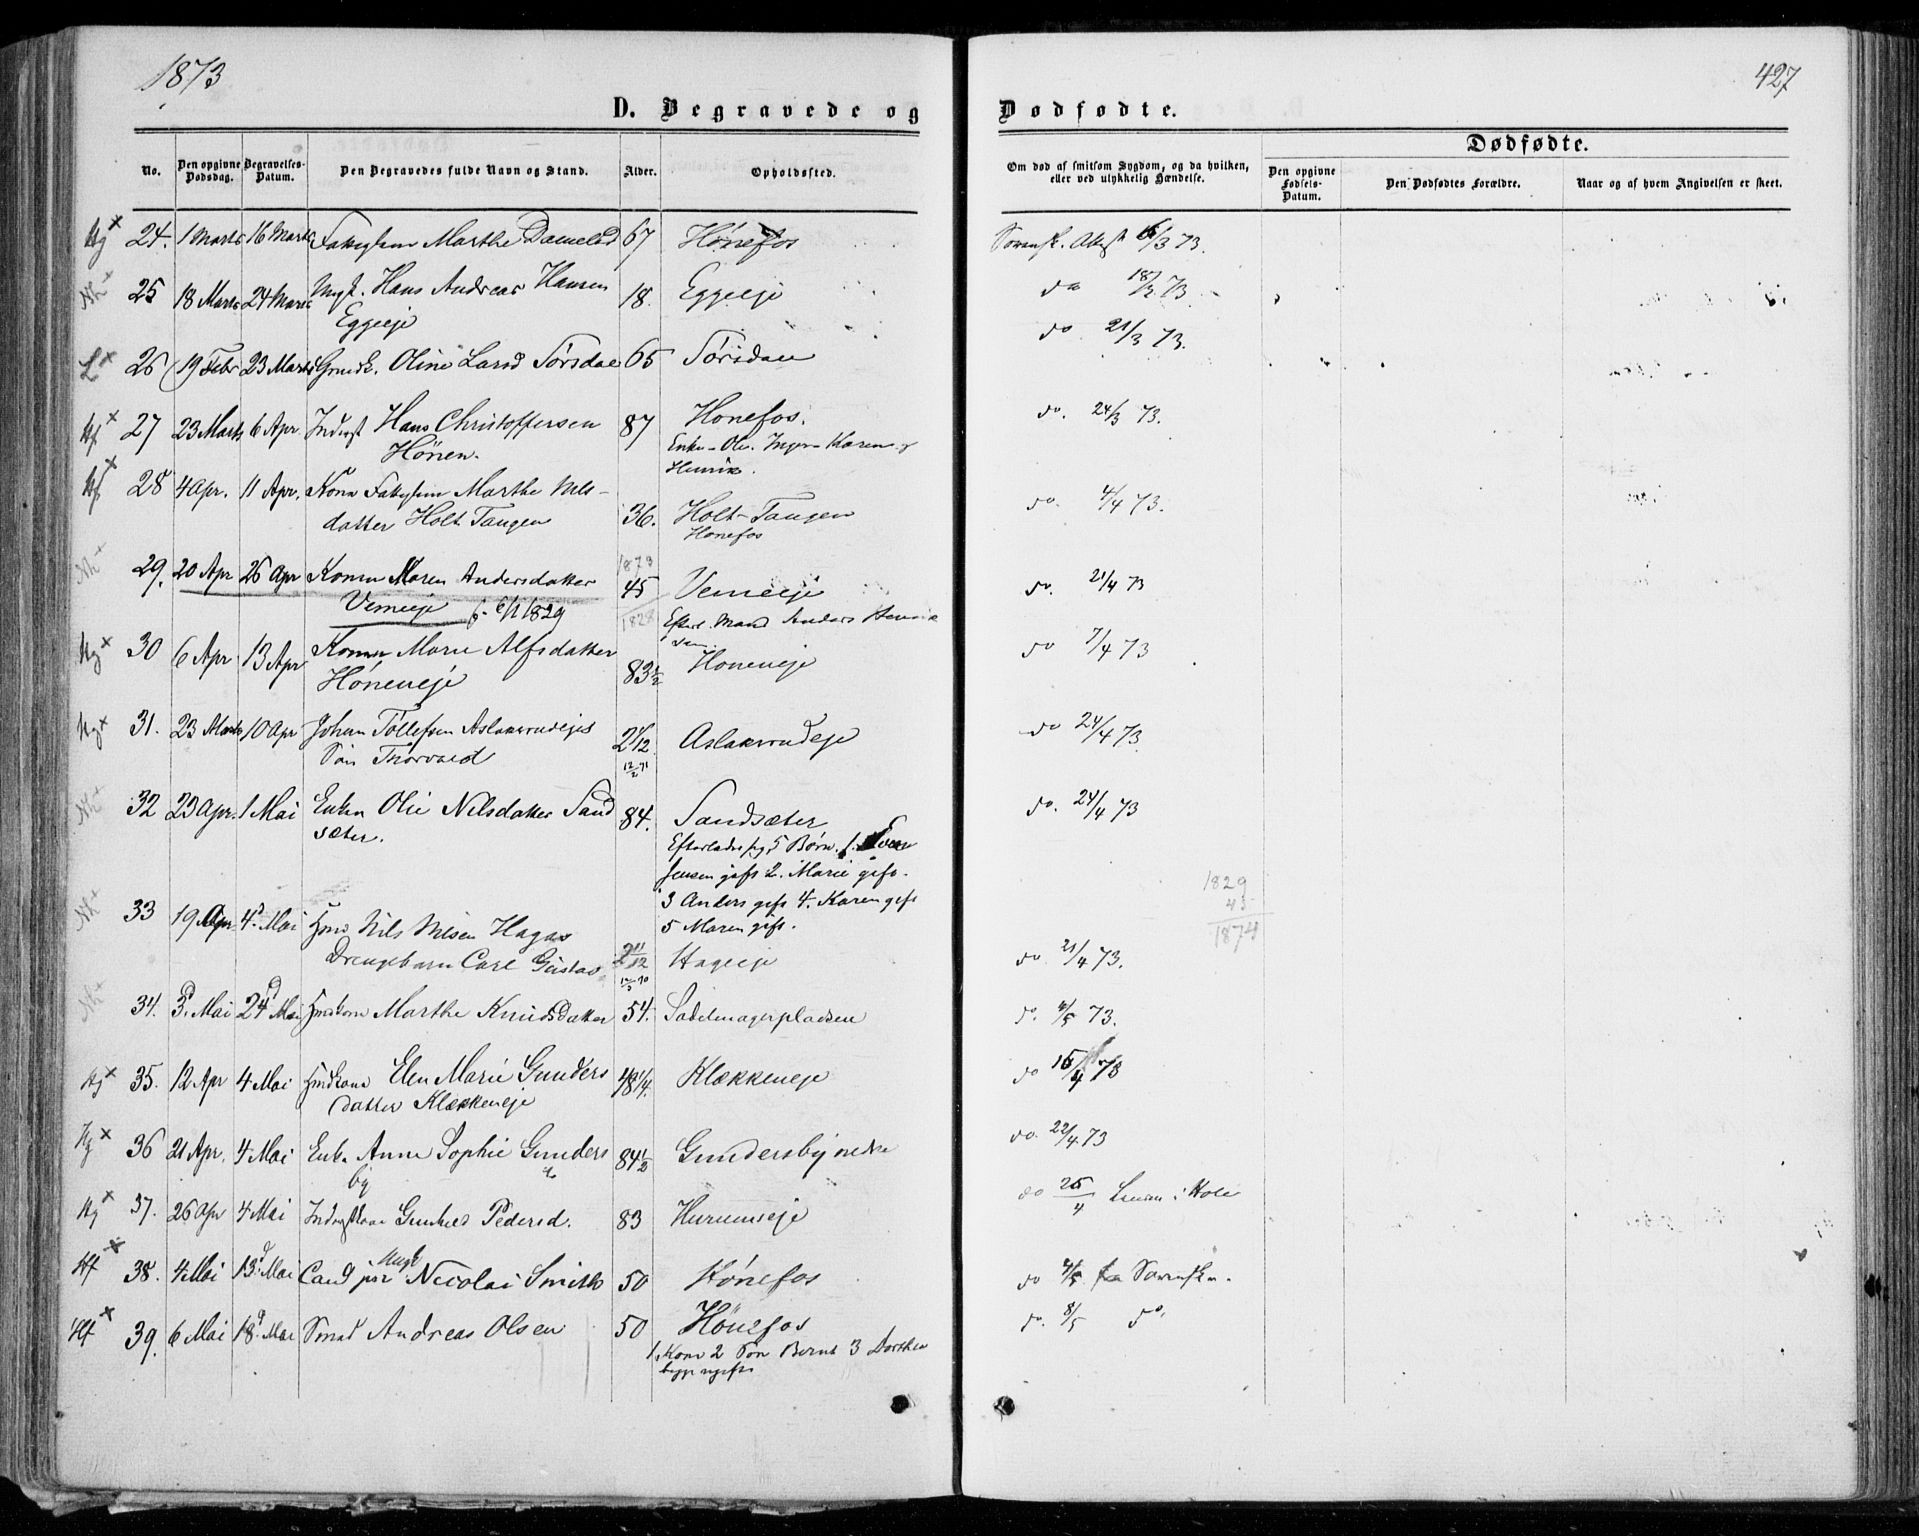 1873
427
D. Begravede og Dødfødte.
No. Den opgivne Dødsdag. Begravelses-Datum. Den Begravedes fulde Navn og Stand. Alder. Opholdssted. Om død af smitsom Sygdom, og da hvilken, eller ved ulykkelig Hændelse. Dødfødte. Den opgivne Fødsels-Datum. Den Dødfødtes Forældre. Naar og af hvem Angivelsen er skeet.
Hg + 24. 1 Marts 16 Marts Marthe 67 Hønefos 6/3 73.
Nh + 25 18 Marts 24 Marts Ungk. Hans Andreas Hansen 18. Eggeeje do 18/3 73
Eggeeje
L + 26 19 Febr 23 Marts Oline Larsd Sørsdal 65 do 21/3 73.
Hf + 27 23 Marts 6 Apr. Inderst Hans Christoffersen 87 Honefos. do. 24/3 73.
Hönen. Enke - Ole. Inger - Karen og
Henrik.
Hf + 28 4 Apr. 11 Apr. Kone Marthe Nils-
datter Holt Tangen 36. Holt-Tangen do. 4/4 73.
Hønefos
1873
Nh + 29. 20 Apr 26 Apr Konen Maren Andersdatter 45 Vemeeje do. 21/4 73
Vemeeje f. 6/1 1829 1828 Efterl. Mand Anders
Hg + 30 6 Apr 13 Apr Konen Marie Alfsdatter 83 1/2 Høneneje do 7/4 73
Høneneje
Hg + 31. 23 Marts 10 Apr Johan Tollefsen Aslaksrudejes 2 1/12 Aslaksrudeje do 24/4 73
Søn Thorvald 12/2 71
Nh + 32 23 Apr. 1 Mai Enken Olie Nilsdatter Sand 84. Sandsæter do. 24/4 73
sæter. Efterlader sig 5 Børn. 1. Even
Jensen gift 2. Marie gift.
3 Anders gift 4. Karen gift
5 Maren gift.
1829
45
1874
Nh + 33 19 Apr 4d Mai Nils Nilsen Hagas
Drengebarn Carl Gustav 2 11/12 Hageeje do. 21/4 73.
Nh + 34. 3d Mai 24d Mai Marthe Knudsdatter 54. Sadelmagerpladsen do. 73.
Hg + 35. 12 Apr 4 Mai Huskone Elen Marie Gunders 48 1/4. Klækkeneje do 15/4 73
datter Klækkeneje
Hg + 36 21 Apr. 4 Mai Enke Anne Sophie Gunders 84 1/2 Gundersby nedre do. 22/4 73
by
Hg + 37. 26 Apr 4 Mai Gunhild Pedersd. 83 Hurumseje do 26/4 i Hole
Hf + 38. 4 Mai 13d Mai Cand jur Ungk Nicolai Smith 50 Hönefos do 4/5
Hf + 39. 6 Mai 18d Mai Smed Andreas Olsen 50 Hönefos do. 8/5 do.
1. Kone 2 Søn Bernt 3 Dorthea
begge ugifte